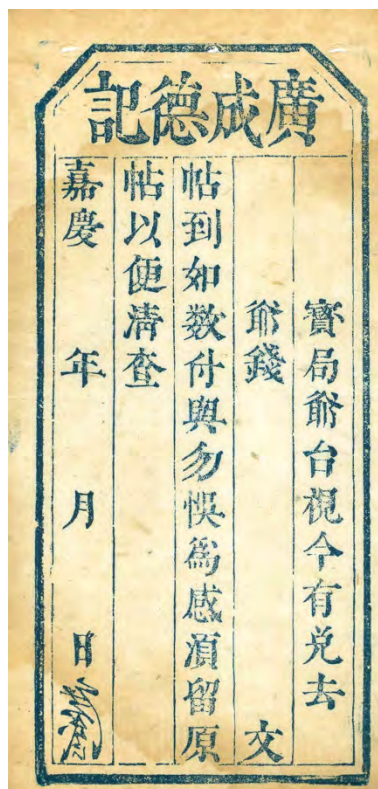 廣成德記
寳局爺台視今有兑去
爺錢 文
帖到如数付與勿悞為感湏留原
帖以便清查
嘉慶 年 月 日